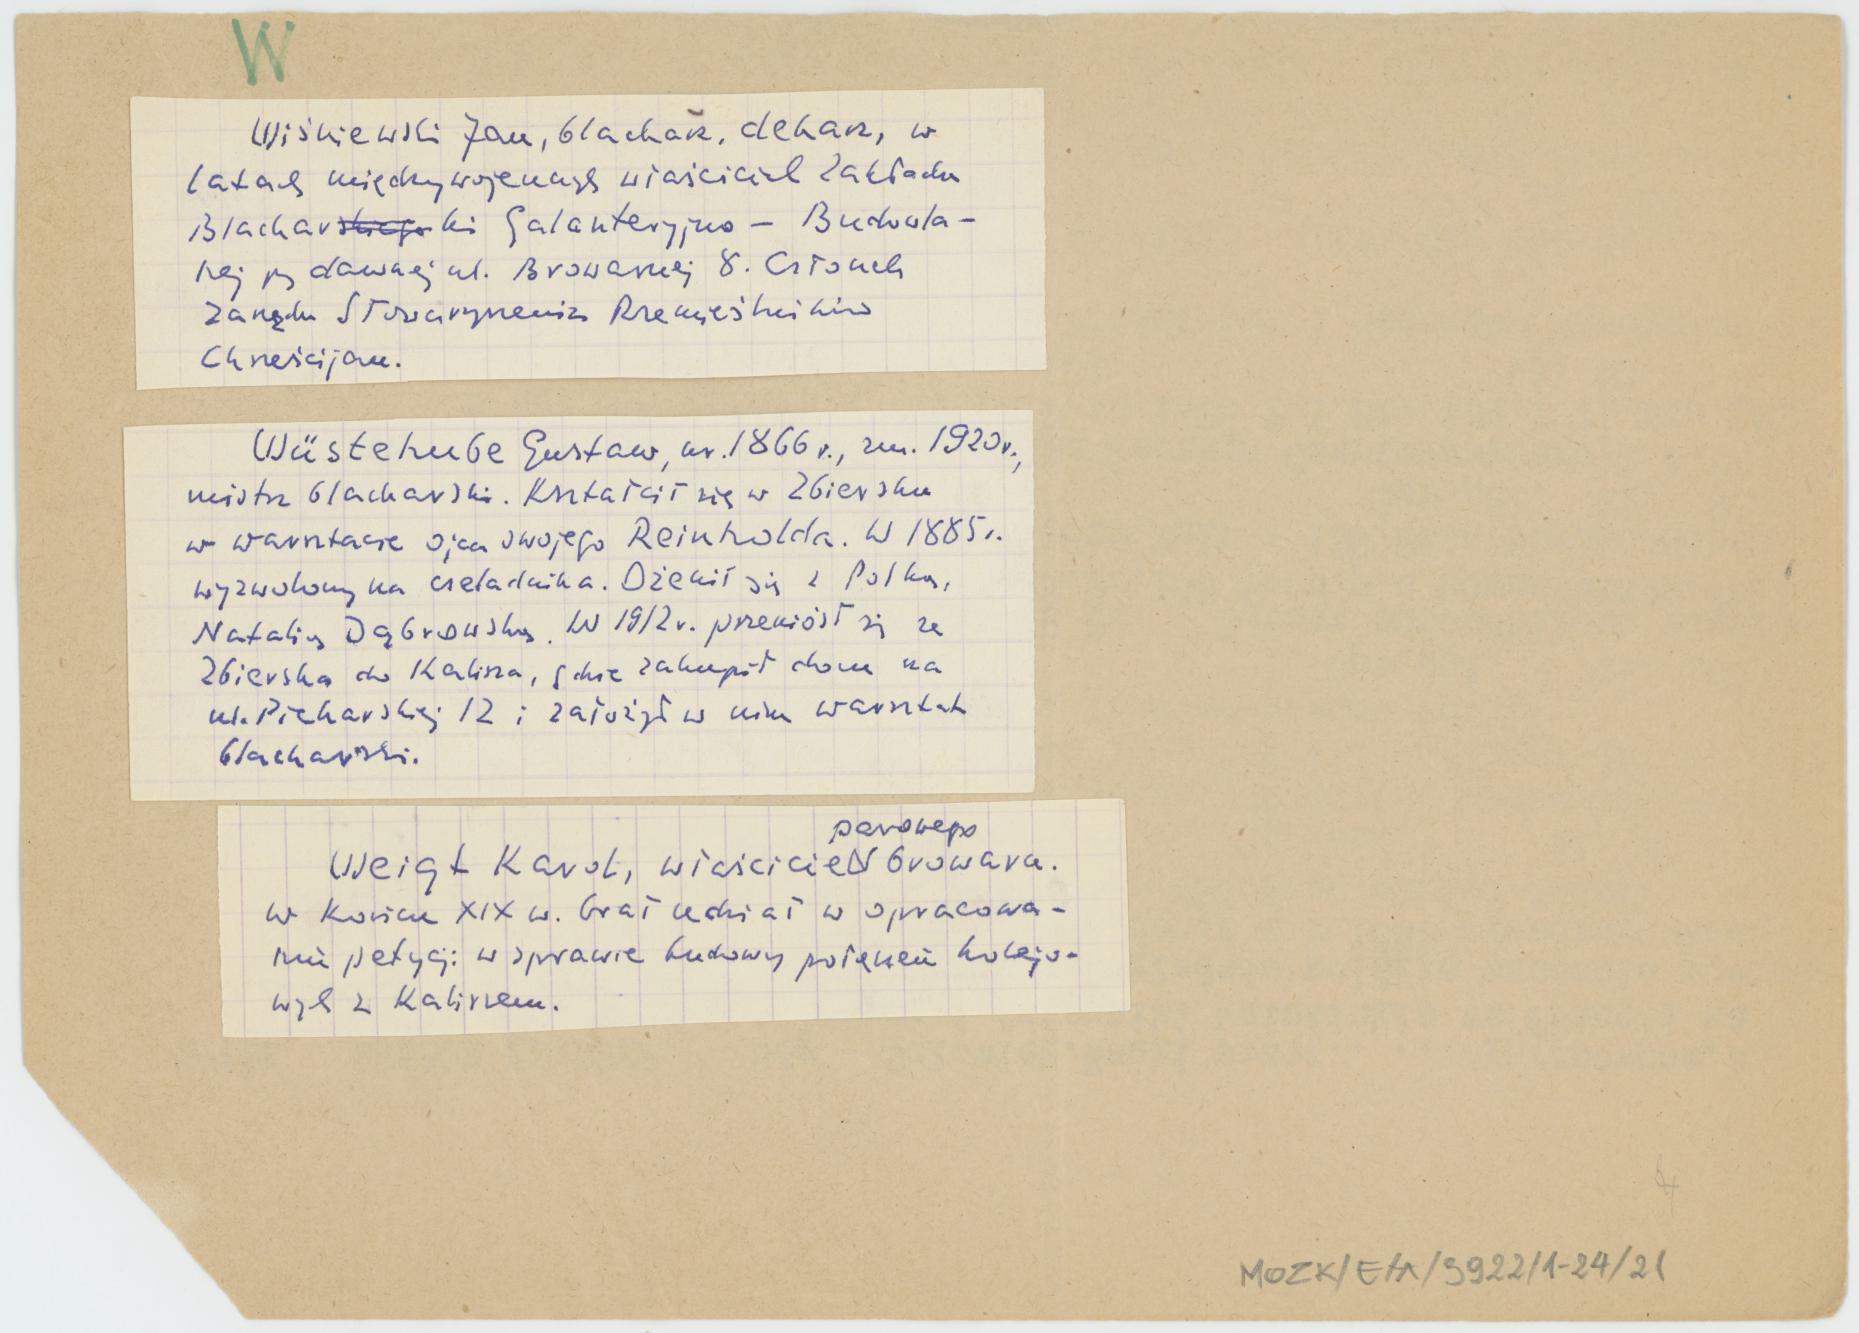 W
Wiśniewski Jan, blacharz, dekarz, w
latach międzywojennych właściciel Zakładu
Blacharskiego ki Galanteryjno - Budowla-
nej przy dawnej ul. Browarnej 8. Członek
Zarządu Stowarzyszenia Rzemieślników
Chrześcijan.
Wüstehube Gustaw, ur. 1866 r., zm. 1920 r.,
mistrz blacharski. Kształcił się w Zbiersku
w warsztacie ojca swojego Reinholda. W 1885 r.
wyzwolony na czeladnika. Ożenił się z Polką,
Natalią Dąbrowską. W 1912 r. przeniósł się ze
Zbierska do Kalisza, gdzie zakupił dom na
ul. Piekarskiej 12 i założył w nim warsztat
blacharski.
parowego
Weigt Karol, właściciel browaru.
W końcu XIX w. brał udział w opracowa-
niu petycji w sprawie budowy połączeń kolejo-
wych z Kaliszem.
MOZK/EtA/3922/1-24/21